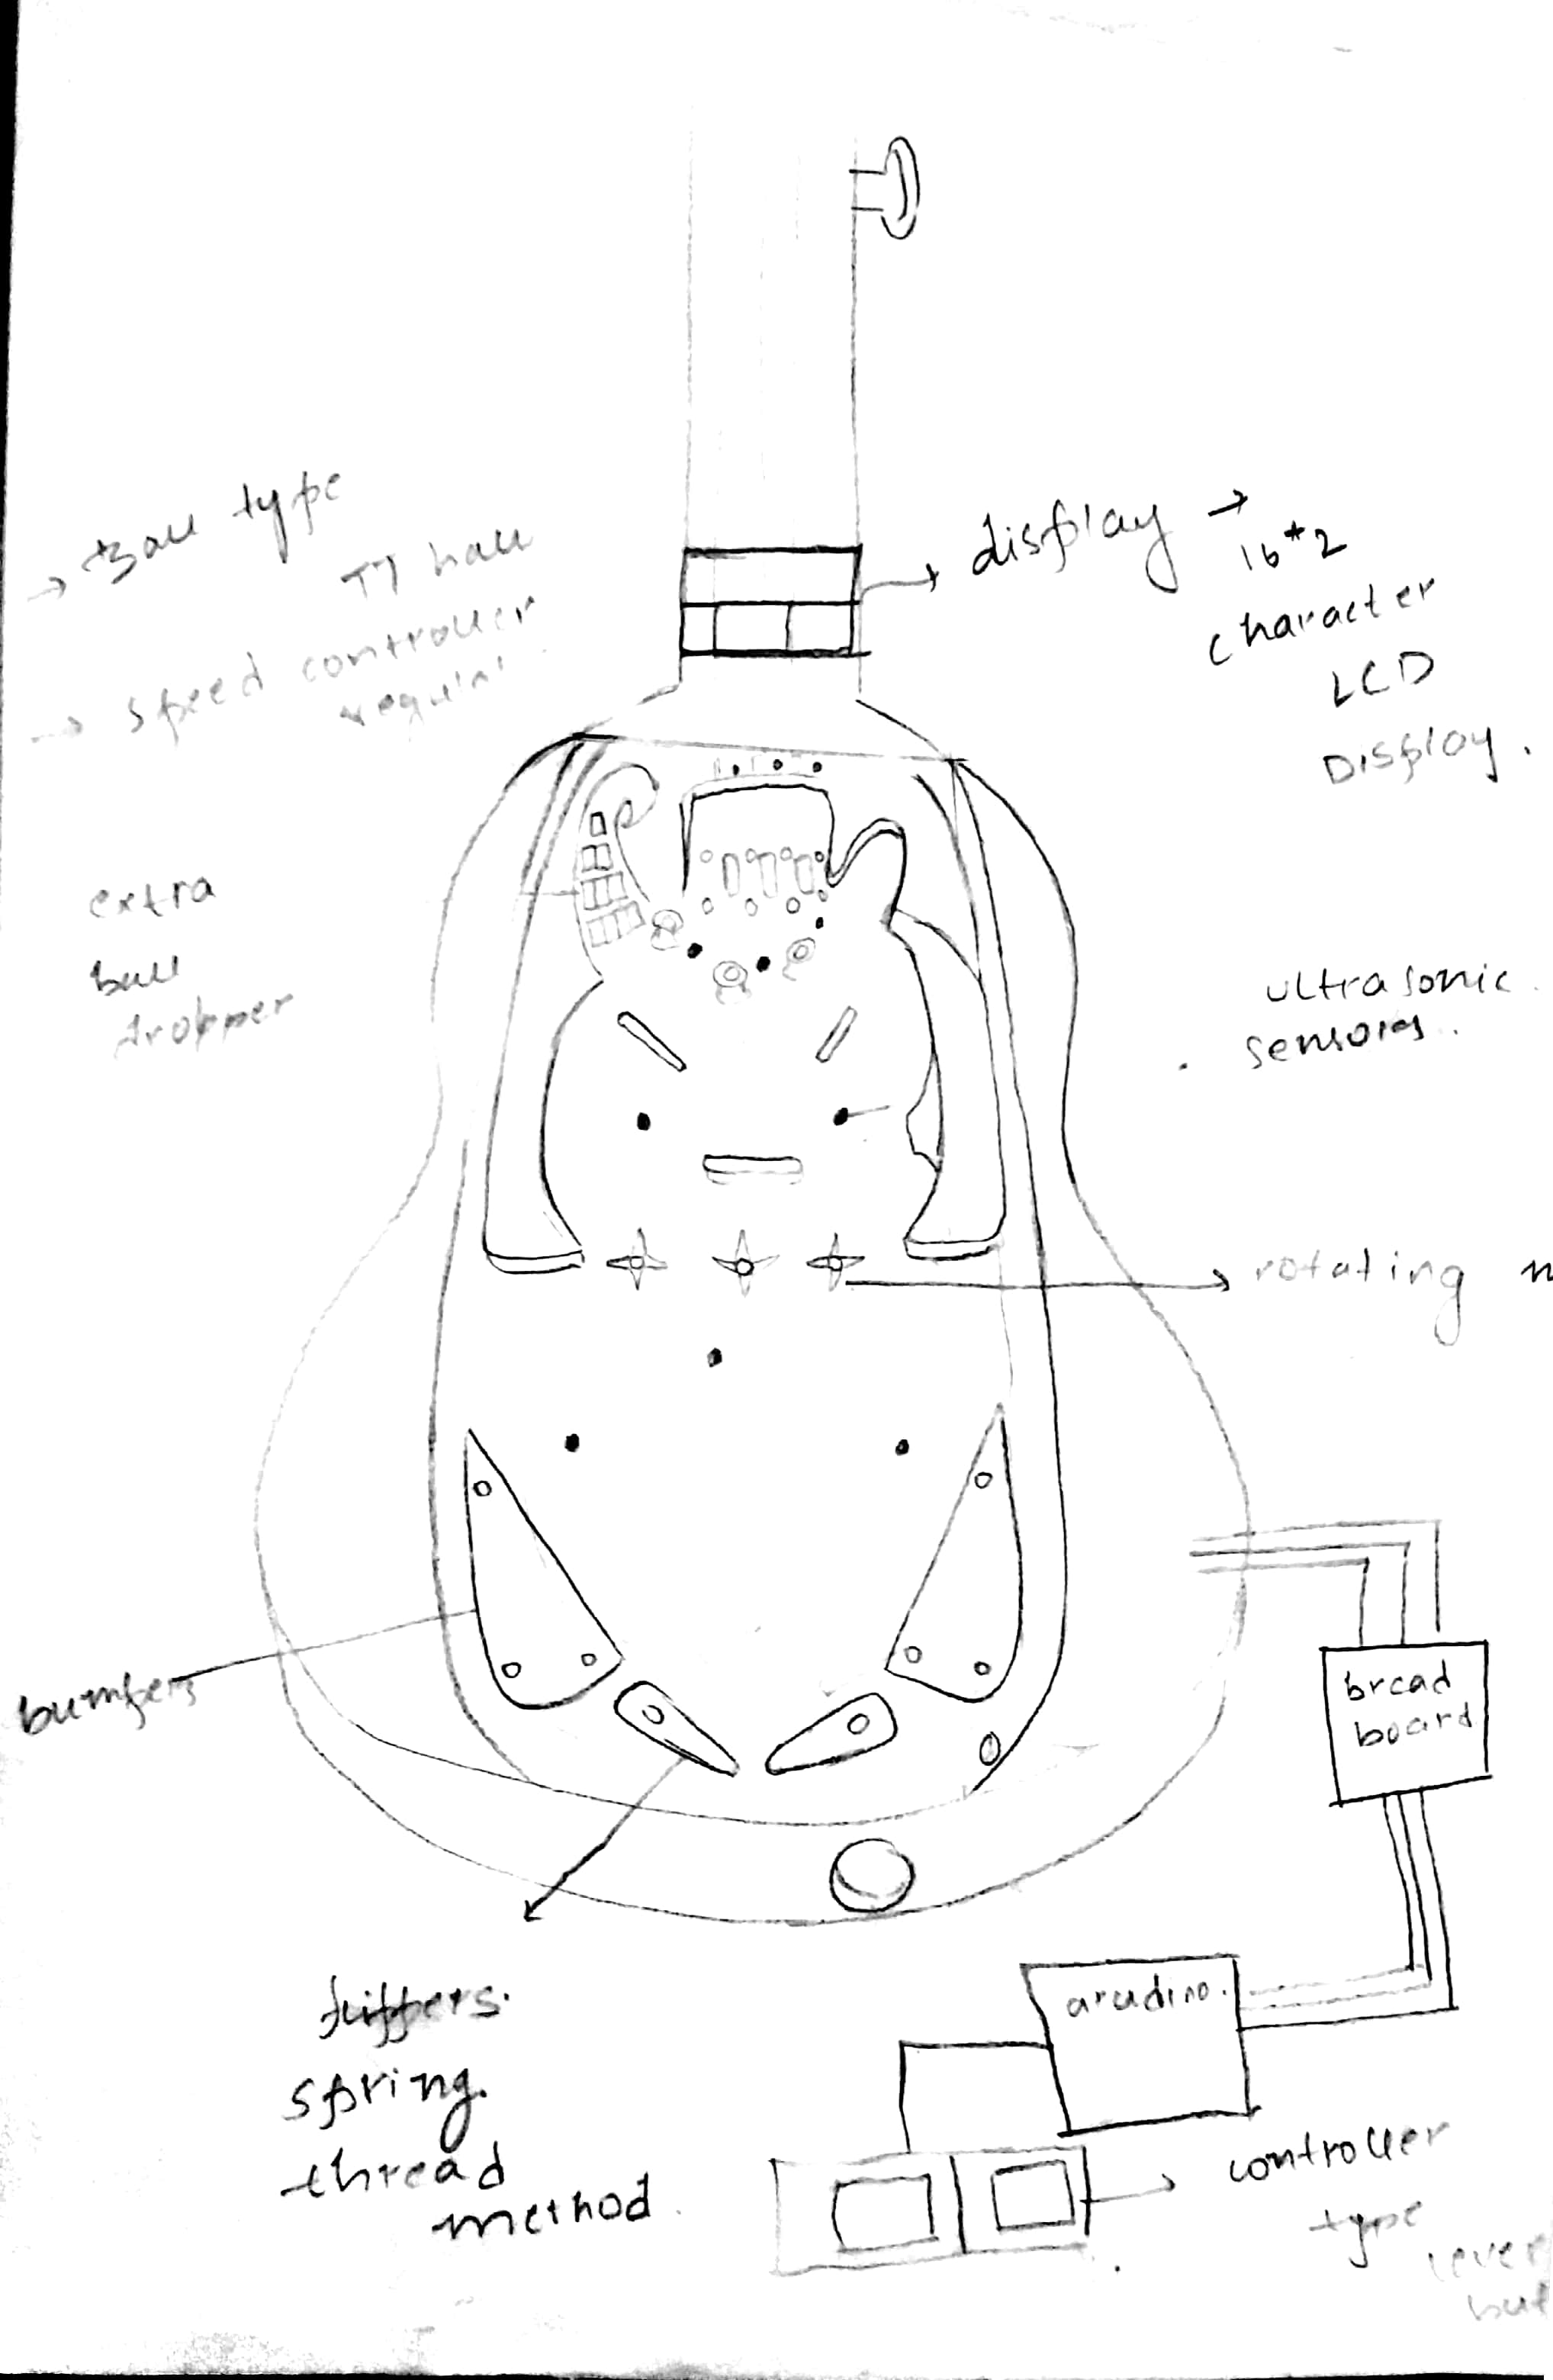 → Ball type
TT ball
→ speed controller
requir'
display →
16*2
character
LCD
Display.
extra
ball
dropper
ultrasonic
sensors.
rotating
bumpers
bread
board
arudino.
flippers.
spring.
thread
method.
controller
type
lever
but